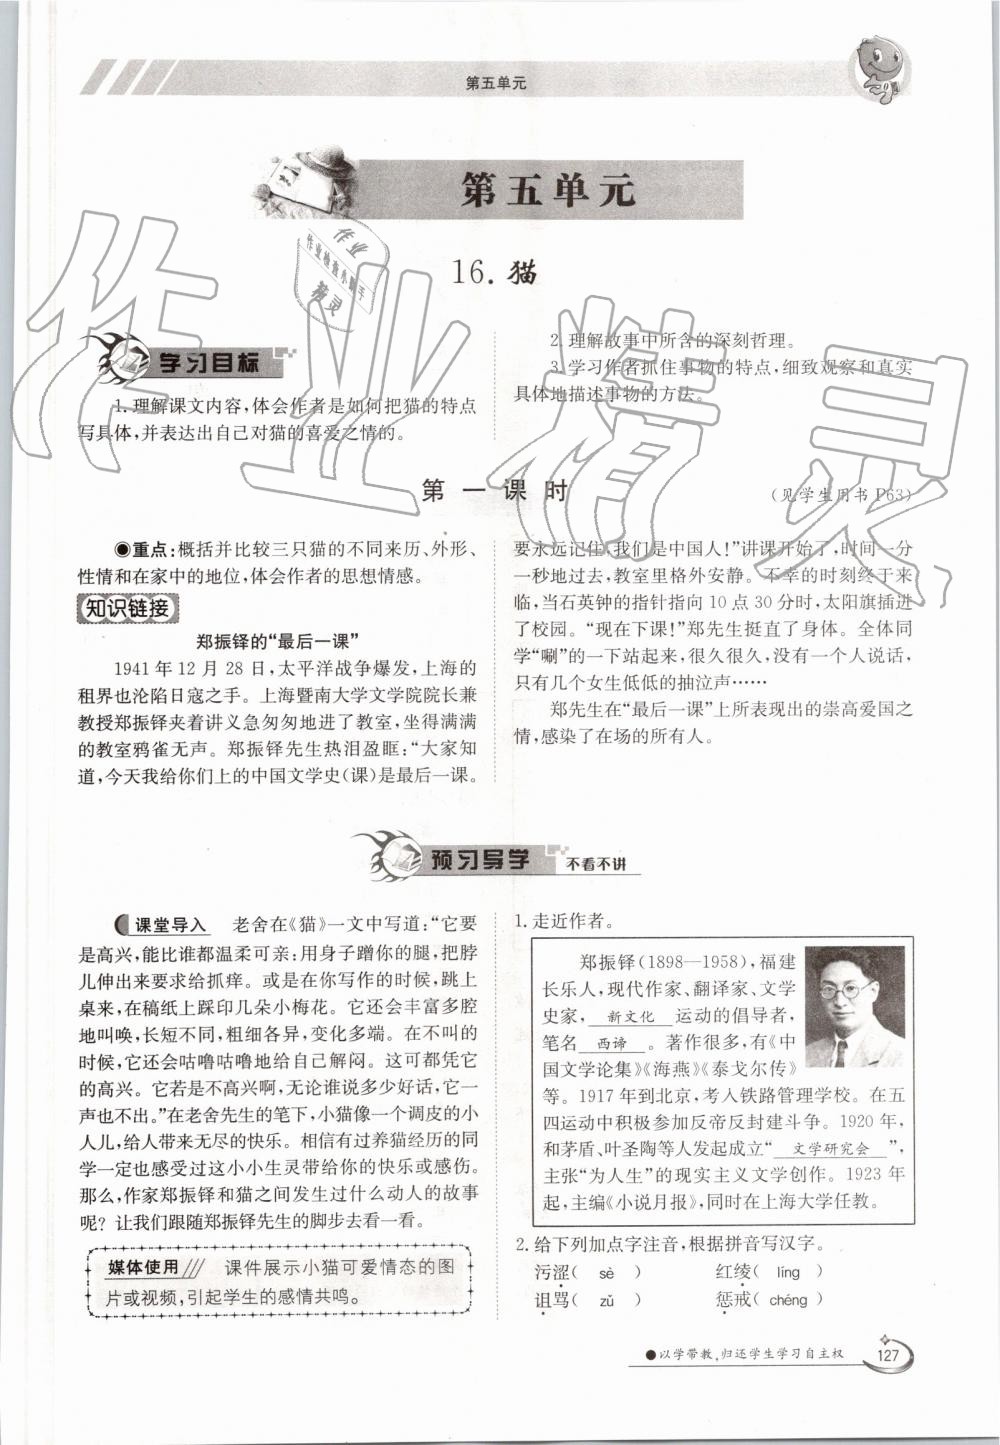 第五单元
第五单元
16.猫
学习目标
1.理解课文内容,体会作者是如何把猫的特点
写具体,并表达出自己对猫的喜爱之情的。
2.理解故事中所含的深刻哲理。
3.学习作者抓住事物的特点,细致观察和真实
具体地描述事物的方法。
第一课时
(见学生用书 P63)
●重点:概括并比较三只猫的不同来历、外形、
性情和在家中的地位,体会作者的思想情感。
知识链接
郑振铎的“最后一课”
1941年12月28日,太平洋战争爆发,上海的
租界也沦陷日寇之手。上海暨南大学文学院院长兼
教授郑振铎夹着讲义急匆匆地进了教室,坐得满满
的教室鸦雀无声。郑振铎先生热泪盈眶:“大家知
道,今天我给你们上的中国文学史(课)是最后一课。
要永远记住,我们是中国人!”讲课开始了,时间一分
一秒地过去,教室里格外安静。不幸的时刻终于来
临,当石英钟的指针指向10点30分时,太阳旗插进
了校园。“现在下课!”郑先生挺直了身体。全体同
学“唰”的一下站起来,很久很久,没有一个人说话,
只有几个女生低低的抽泣声……
郑先生在“最后一课”上所表现出的崇高爱国之
情,感染了在场的所有人。
预习导学 不看不讲
课堂导入 老舍在《猫》一文中写道:“它要
是高兴,能比谁都温柔可亲:用身子蹭你的腿,把脖
儿伸出来要求给抓痒。或是在你写作的时候,跳上
桌来,在稿纸上踩印几朵小梅花。它还会丰富多腔
地叫唤,长短不同,粗细各异,变化多端。在不叫的
时候,它还会咕噜咕噜地给自己解闷。这可都凭它
的高兴。它若是不高兴啊,无论谁说多少好话,它一
声也不出。”在老舍先生的笔下,小猫像一个调皮的小
人儿,给人带来无尽的快乐。相信有过养猫经历的同
学一定也感受过这小小生灵带给你的快乐或感伤。
那么,作家郑振铎和猫之间发生过什么动人的故事
呢?让我们跟随郑振铎先生的脚步去看一看。
媒体使用 课件展示小猫可爱情态的图
片或视频,引起学生的感情共鸣。
1.走近作者。
郑振铎(1898—1958),福建
长乐人,现代作家、翻译家、文学
史家,新文化运动的倡导者,
笔名西谛。著作很多,有《中
国文学论集》《海燕》《泰戈尔传》
等。1917年到北京,考入铁路管理学校。在五
四运动中积极参加反帝反封建斗争。1920年,
和茅盾、叶圣陶等人发起成立“文学研究会”,
主张“为人生”的现实主义文学创作。1923年
起,主编《小说月报》,同时在上海大学任教。
2.给下列加点字注音,根据拼音写汉字。
污涩( sè ) 红绫( líng )
诅骂( zǔ ) 惩戒( chéng )
●以学带教,归还学生学习自主权
127
作业精灵
作业
作业检查小助手
精灵